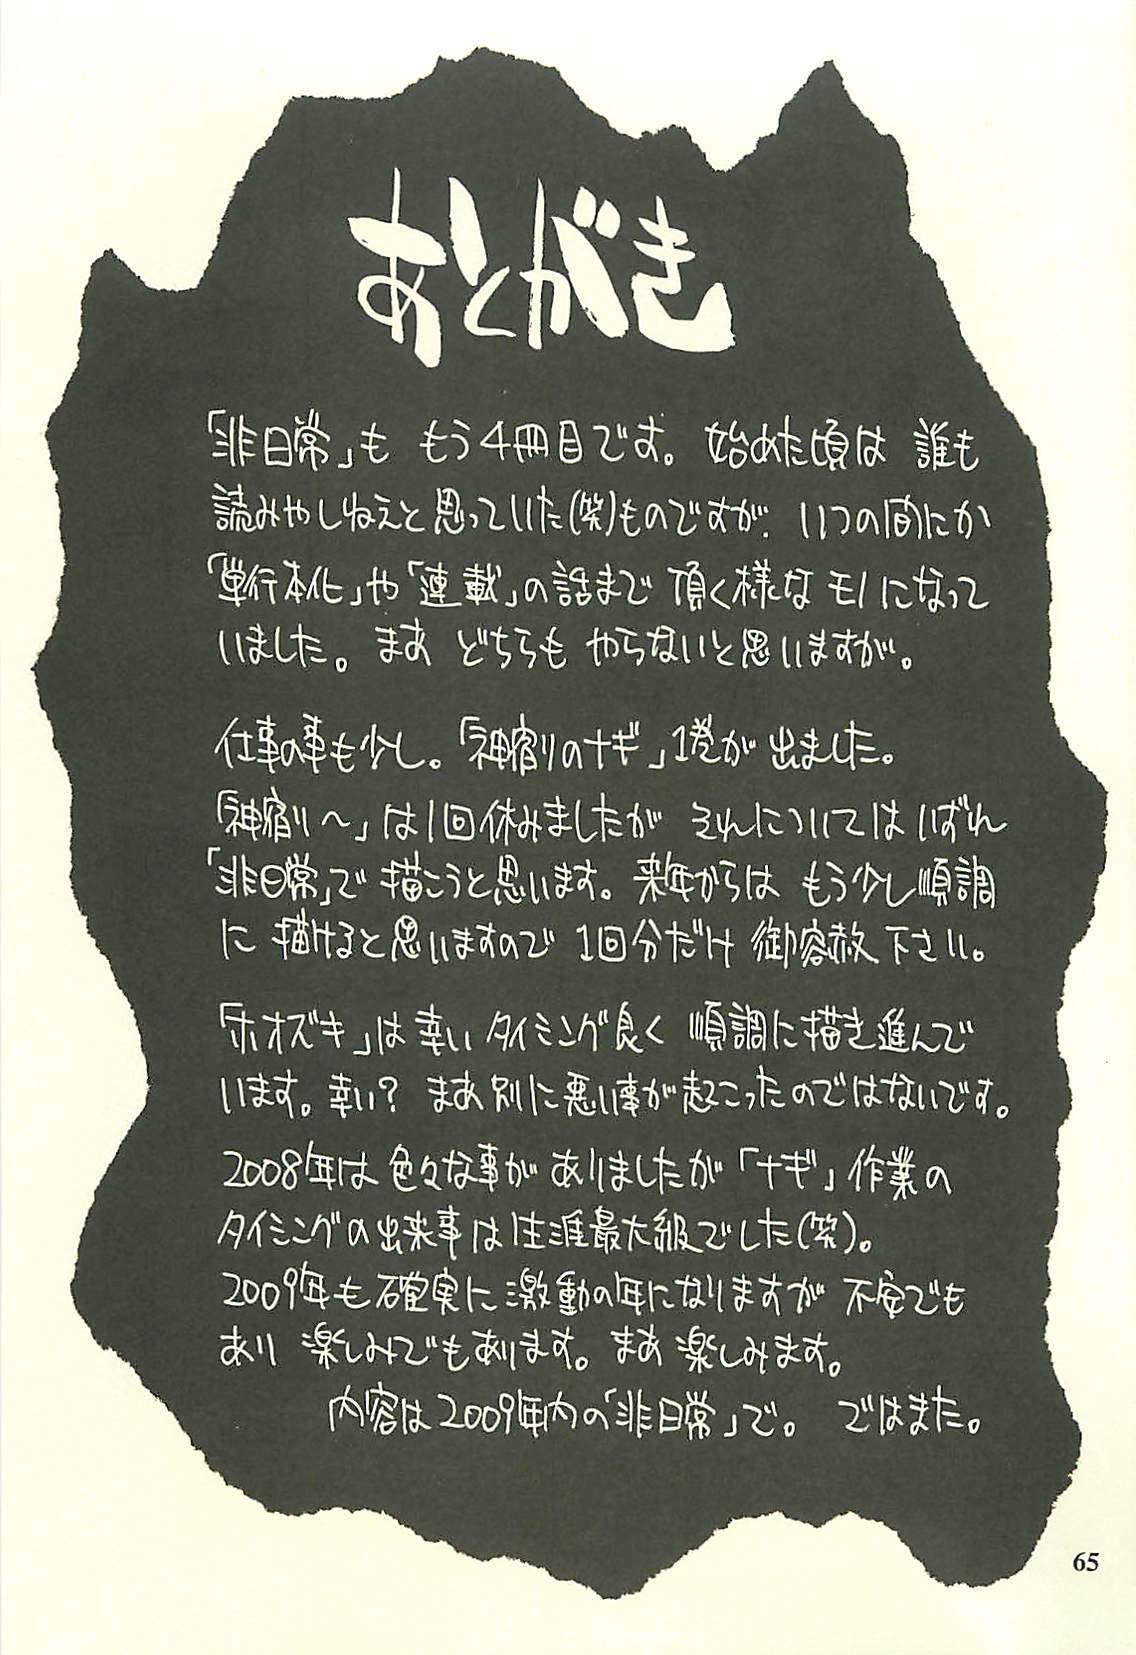 あとがき
「非日常」も もう4冊目です。始めた頃は 誰も
読みやしねえと思っていた(笑)ものですが、いつの間にか
「単行本化」や「連載」の話まで 頂く様なモノになって
いました。まあ どちらも やらないと思いますが。
仕事の事も少し。「神宿りのナギ」1巻が 出ました。
「神宿り〜」は1回休みましたが それについては いずれ
「非日常」で 描こうと思います。来年からは もう少し順調
に 描けると思いますので 1回分だけ 御容赦 下さい。
「ホオズキ」は幸い タイミング良く 順調に描き進んで
います。幸い? まあ別に悪い事が起こったのではないです。
2008年は 色々な事が ありましたが「ナギ」作業の
タイミングの出来事は生涯最大級でした(笑)。
2009年も確実に激動の年になりますが 不安でも
あり 楽しみでもあります。まあ 楽しみます。
内容は2009年内の「非日常」で。 ではまた。
65